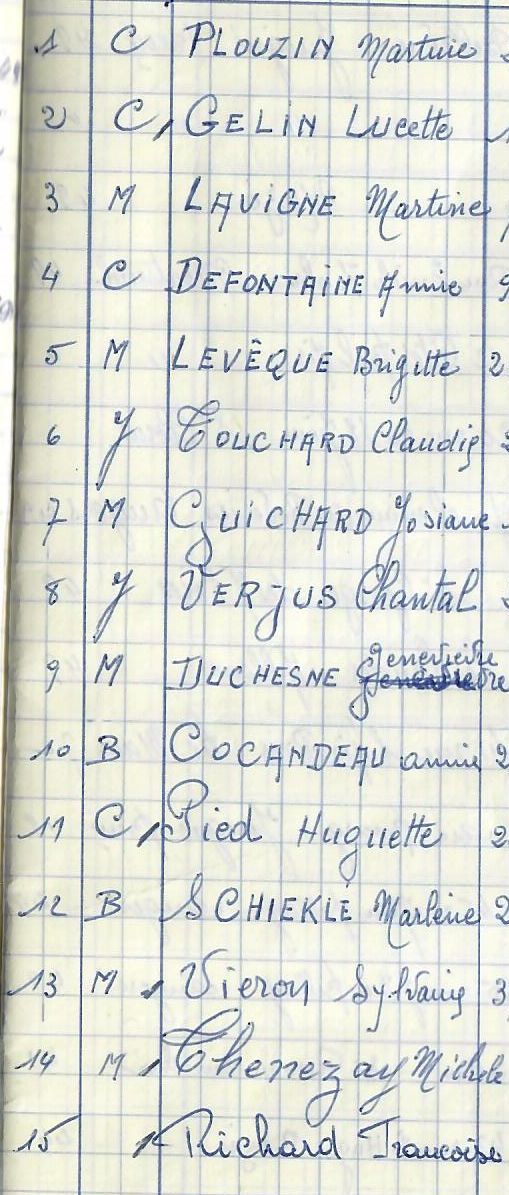 1 C PLOUZIN Martine
2 C, GELIN Lucette 1
3 M LAVIGNE Martine
4 C DEFONTAINE Annie 9
5 M LEVÊQUE Brigitte 2
6 J TOUCHARD Claudie
7 M GUICHARD Josiane
8 J VERJUS Chantal
9 M DUCHESNE Geneviève
10 B COCANDEAU annie 2
11 C, Pied Huguette 2
12 B SCHIEKLÉ Marlène 2
13 M, Vieron Sylvaine 3
14 M, Thenezay Michele
15 Richard Francoise